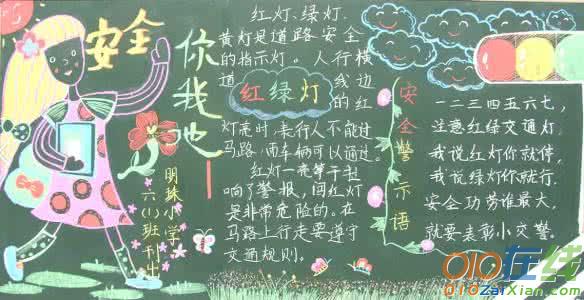 安全
你我他
明珠小学
六(1)班刊出
红灯、绿灯、
黄灯是道路安全
的指示灯。人行横
道线边
的红
红绿灯
灯亮时，表行人不能过
马路，而车辆可以通过。
红灯一亮等于拉
响了警报，闯红灯
是非常危险的。在
马路上行走要遵守
交通规则。
安全警示语
一二三四五六七，
注意红绿交通灯。
我说红灯你就停，
我说绿灯你就行。
安全功劳谁最大，
就要表彰小交警。
010在线
010ZaiXian.com